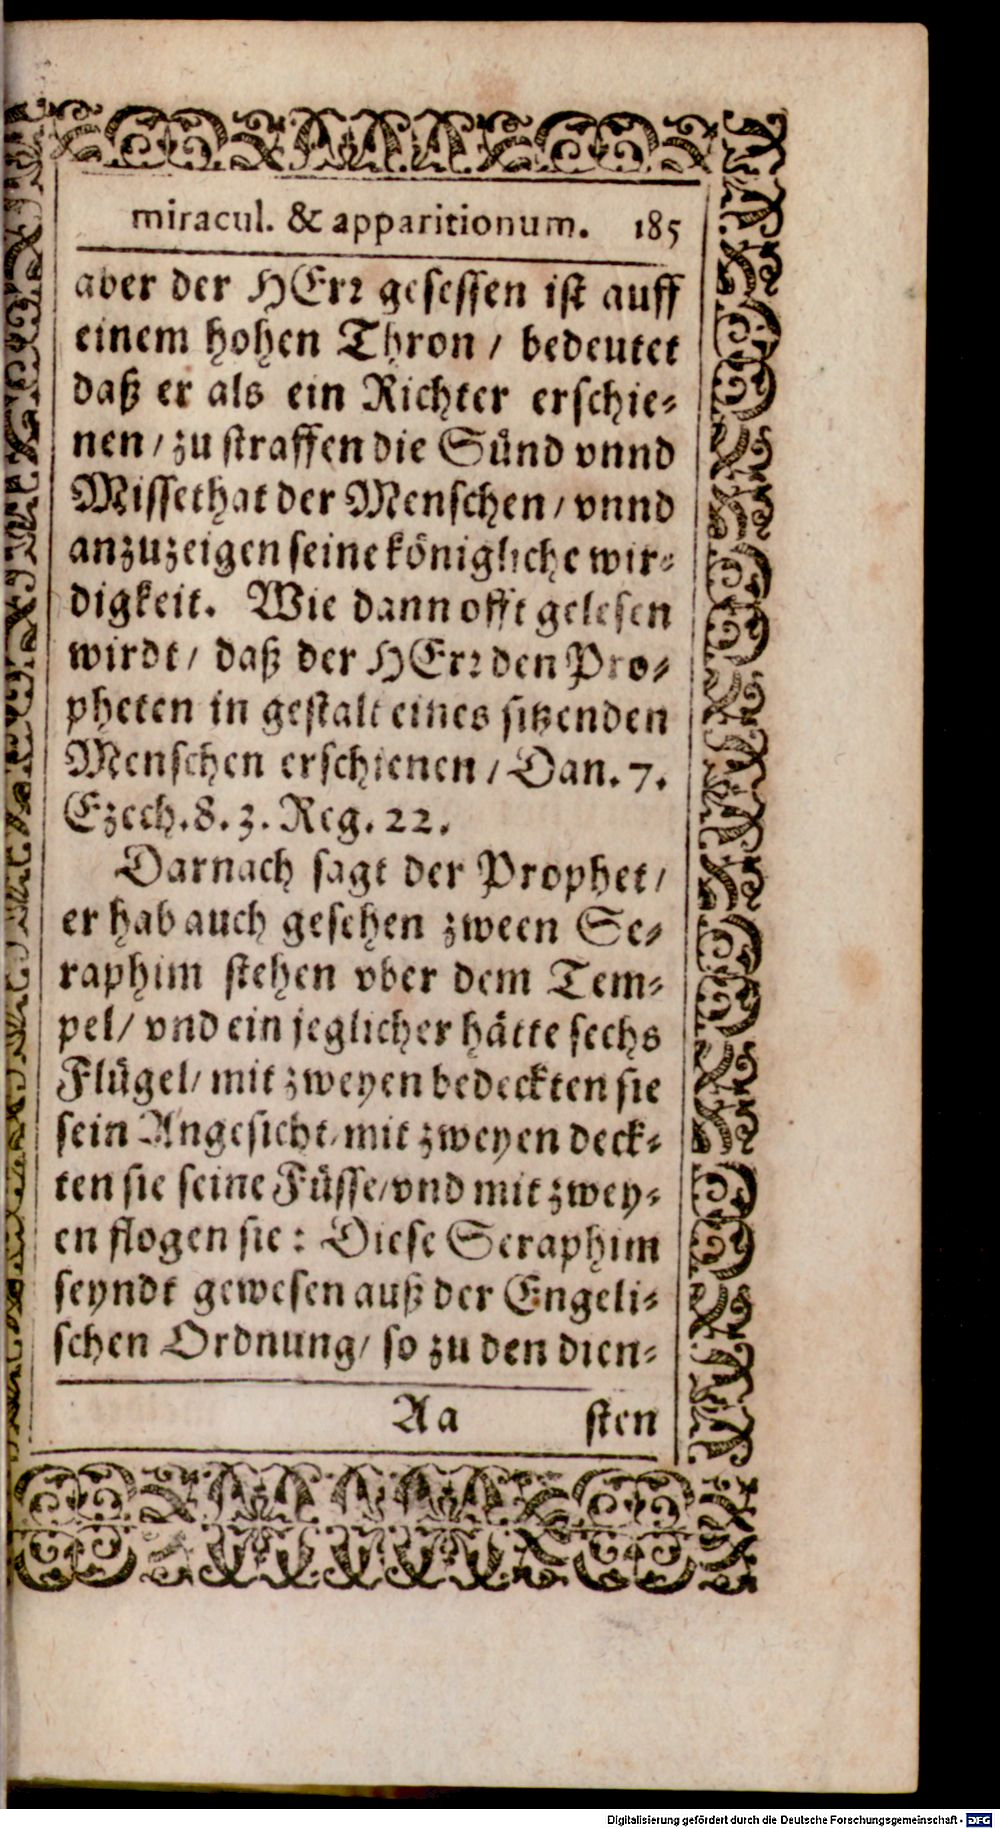 miracul. & apparitionum. 185
aber der HErr gesessen ist auff
einem hohen Thron / bedeutet
daß er als ein Richter erschie-
nen / zu straffen die Sünd vnnd
Missethat der Menschen / vnnd
anzuzeigen seine königliche wir-
digkeit. Wie dann offt gelesen
wirdt / daß der HErr den Pro-
pheten in gestalt eines sitzenden
Menschen erschienen / Dan. 7.
Ezech. 8. 3. Reg. 22.
Darnach sagt der Prophet /
er hab auch gesehen zween Se-
raphim stehen vber dem Tem-
pel / vnd ein jeglicher hätte sechs
Flügel / mit zweyen bedeckten sie
sein Angesicht / mit zweyen deck-
ten sie seine Füsse / vnd mit zwey-
en flogen sie : Diese Seraphim
seyndt gewesen auß der Engeli-
schen Ordnung / so zu den dien-
Aa sten
Digitalisierung gefördert durch die Deutsche Forschungsgemeinschaft - DFG